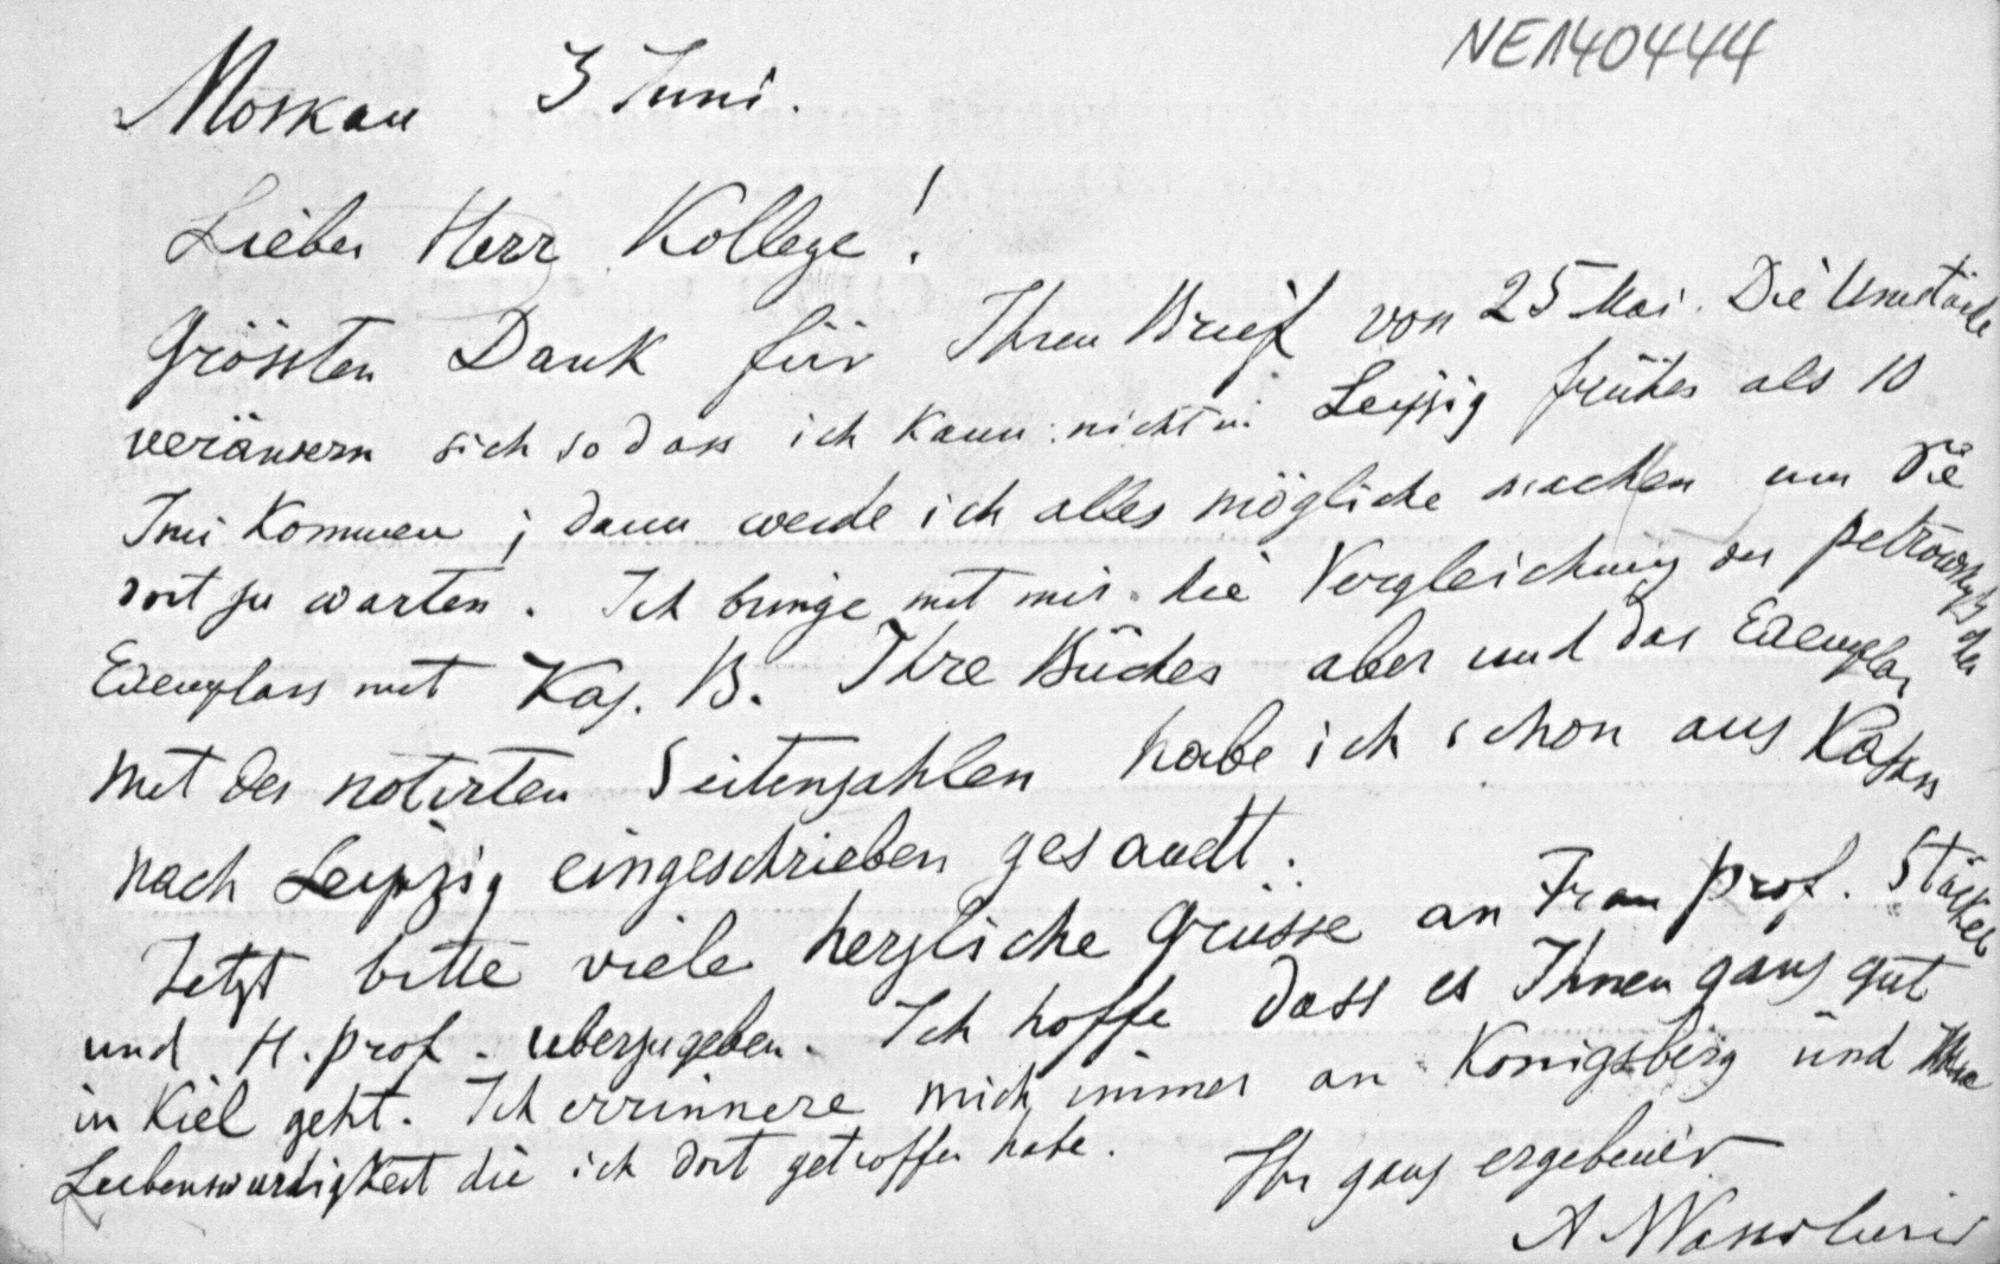 NE140444
Moskau 3 Juni.
Lieber Herr Kollege!
Grössten Dank für Ihren Brief von 25 Mai. Die Umstände
veränsern sich so dass ich kann nicht in Leipzig früher als 10
Juni kommen; dann werde ich alles mögliche machen um Sie
dort zu warten. Ich bringe mit mir die Vergleichung des
Exemplars mit Kap. B. Ihre Bücher aber und das Exemplar
mit der notirten Seitenzahlen habe ich schon aus Kasan
nach Leipzig eingeschrieben gesandt.
Jetzt bitte viele herzliche Grüsse an Frau Prof. Stäckel
und H. Prof. uberzugeben. Ich hoffe dass es Ihnen ganz gut
in Kiel geht. Ich errinnere mich immer an Königsberg und Ihre
Liebenswurdigkeit die ich dort getroffen habe.
Ihr ganz ergebener
A Wassiliew